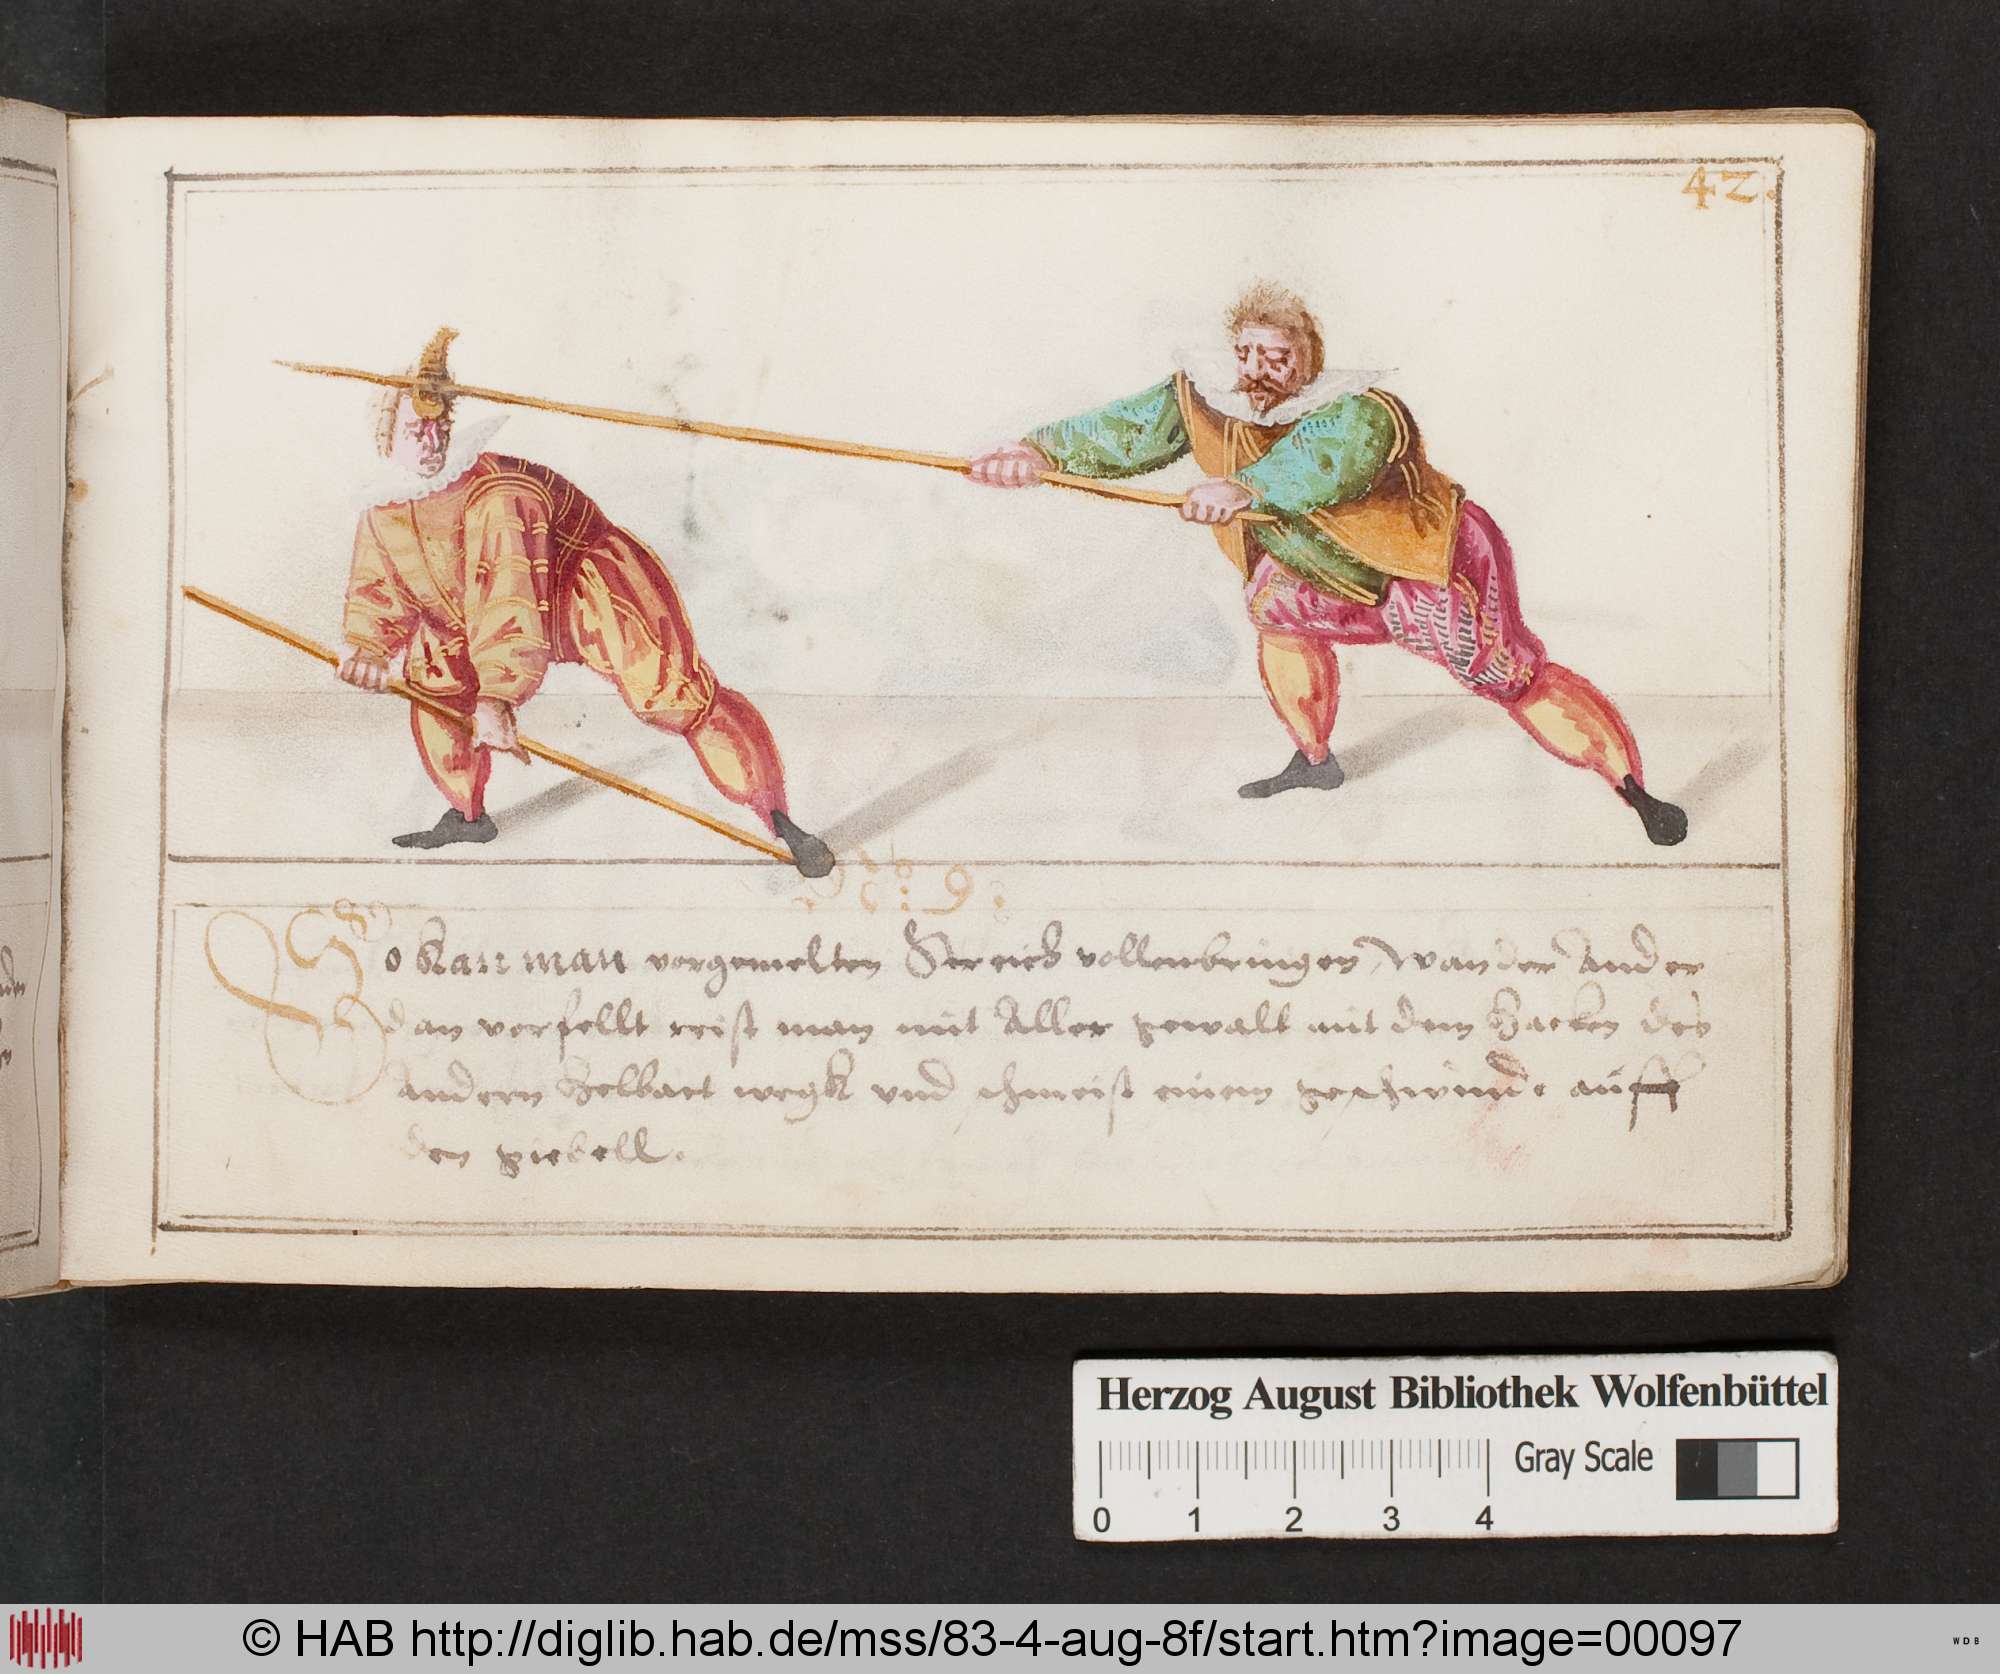 42.
89:
So kan man vorgemelten Streich vollenbringen, wan der Ander
dan verfellt reist man mit Aller gewalt mit dem Hacken des
andern Helbart wegk und schmeist einem geschwinde auff
den giebell.
Herzog August Bibliothek Wolfenbüttel
Gray Scale
0 1 2 3 4
© HAB http://diglib.hab.de/mss/83-4-aug-8f/start.htm?image=00097
WDB